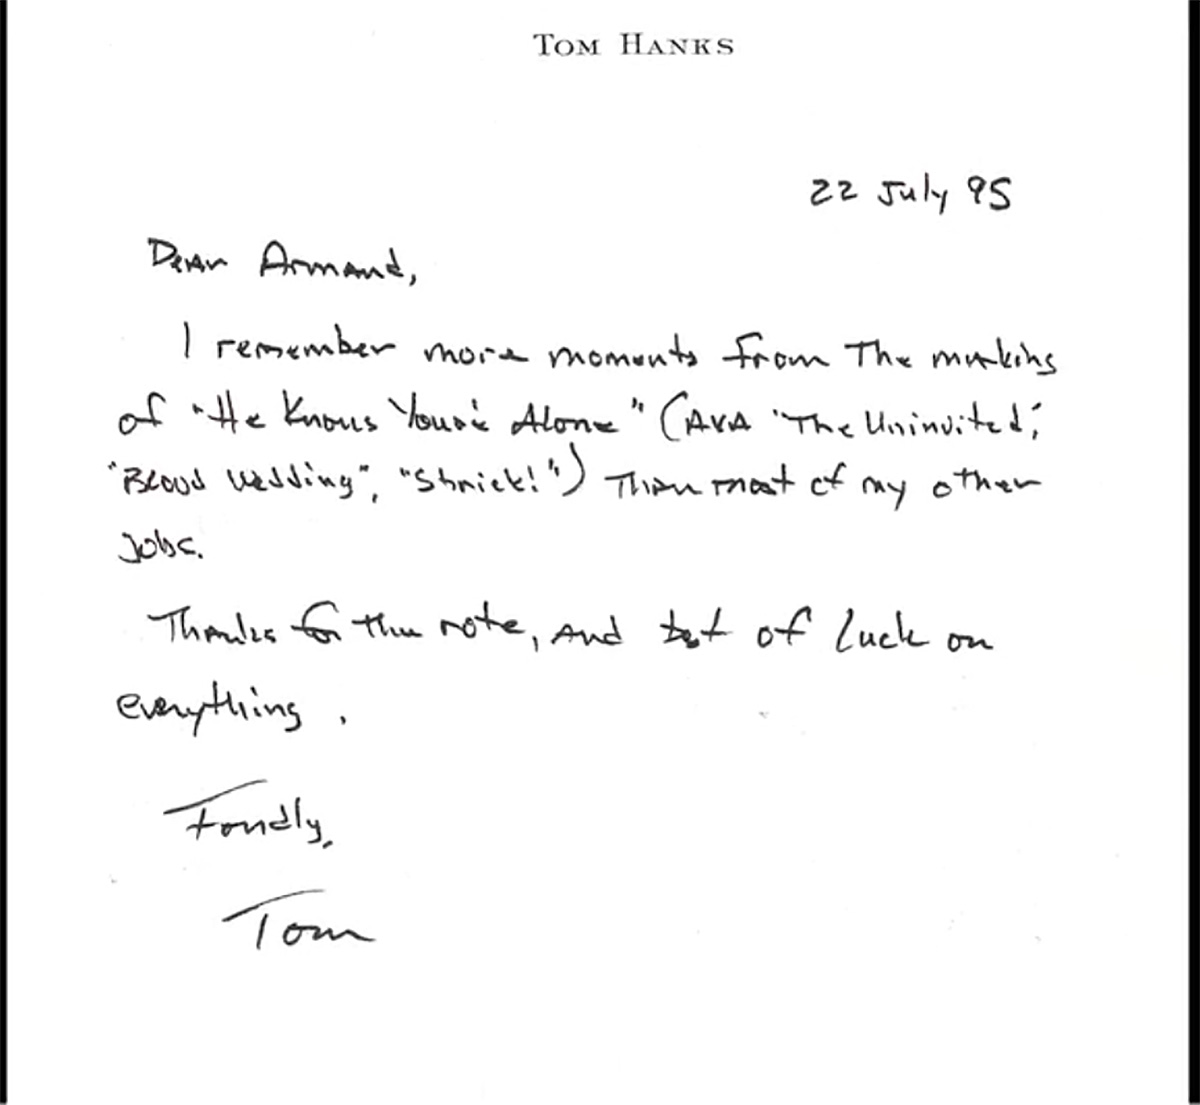 TOM HANKS
22 July 95
Dear Armand,
I remember more moments from The making
of "He Knows You're Alone" (AKA "The Uninvited",
"Blood Wedding", "Shriek!") Than most of my other
jobs.
Thanks for the note, and best of luck on
everything.
Fondly,
Tom